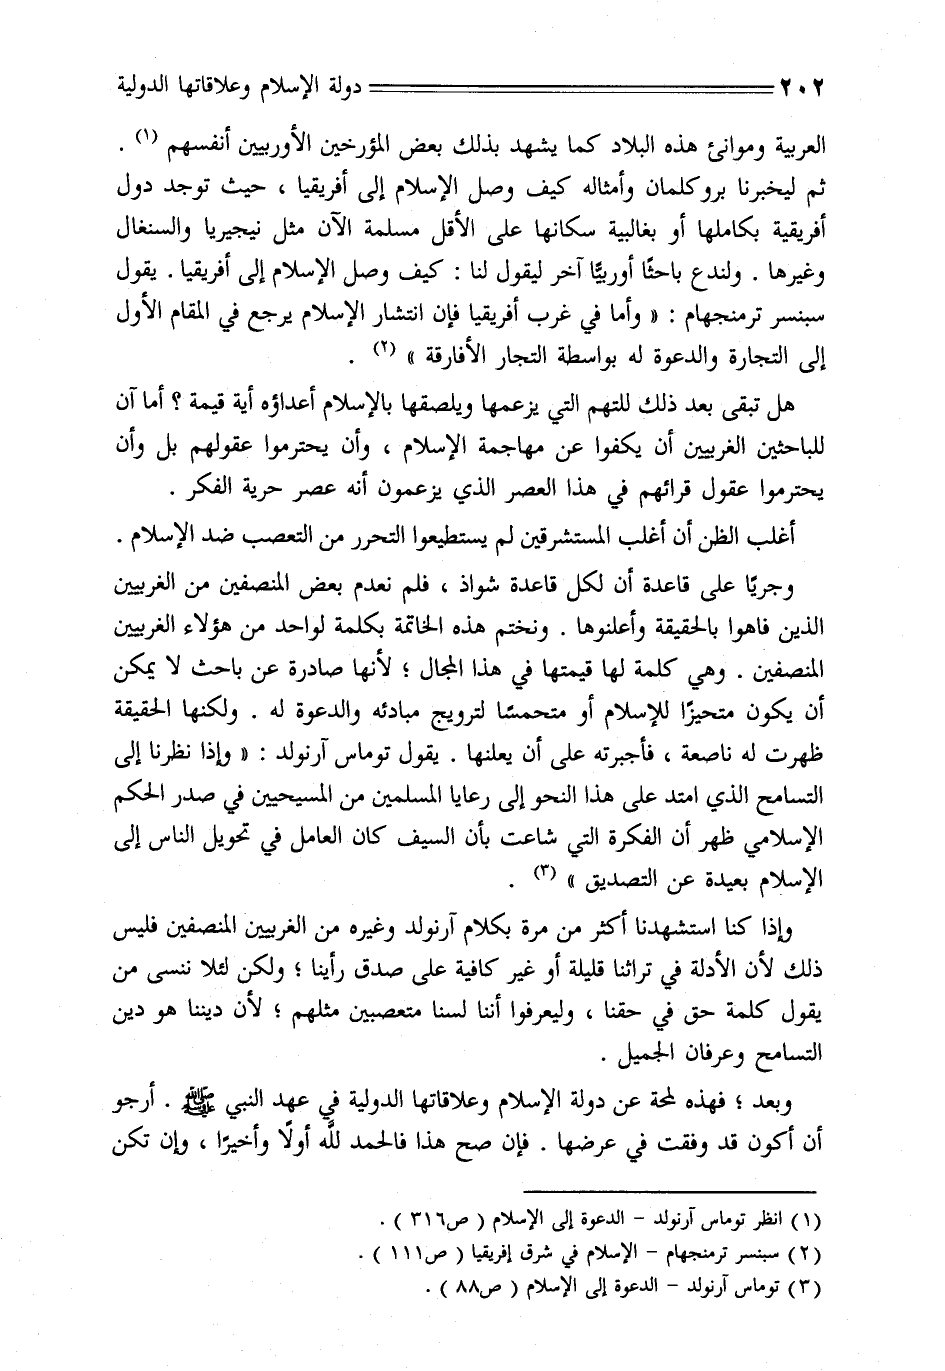 ٢٠٢ دولة الإسلام وعلاقاتها الدولية
العربية وموانئ هذه البلاد كما يشهد بذلك بعض المؤرخين الأوربيين أنفسهم (١) .
ثم ليخبرنا بروكلمان وأمثاله كيف وصل الإسلام إلى أفريقيا ، حيث توجد دول
أفريقية بكاملها أو بغالبية سكانها على الأقل مسلمة الآن مثل نيجيريا والسنغال
وغيرها . ولندع باحثًا أوربيًّا آخر ليقول لنا : كيف وصل الإسلام إلى أفريقيا . يقول
سبنسر ترمنجهام : « وأما في غرب أفريقيا فإن انتشار الإسلام يرجع في المقام الأول
إلى التجارة والدعوة له بواسطة التجار الأفارقة » (٢) .
هل تبقى بعد ذلك للتهم التي يزعمها ويلصقها بالإسلام أعداؤه أية قيمة ؟ أما آن
للباحثين الغربيين أن يكفوا عن مهاجمة الإسلام ، وأن يحترموا عقولهم بل وأن
يحترموا عقول قرائهم في هذا العصر الذي يزعمون أنه عصر حرية الفكر .
أغلب الظن أن أغلب المستشرقين لم يستطيعوا التحرر من التعصب ضد الإسلام .
وجريًا على قاعدة أن لكل قاعدة شواذ ، فلم نعدم بعض المنصفين من الغربيين
الذين فاهوا بالحقيقة وأعلنوها . ونختم هذه الخاتمة بكلمة لواحد من هؤلاء الغربيين
المنصفين . وهي كلمة لها قيمتها في هذا المجال ؛ لأنها صادرة عن باحث لا يمكن
أن يكون متحيزًا للإسلام أو متحمسًا لترويج مبادئه والدعوة له . ولكنها الحقيقة
ظهرت له ناصعة ، فأجبرته على أن يعلنها . يقول توماس آرنولد : « وإذا نظرنا إلى
التسامح الذي امتد على هذا النحو إلى رعايا المسلمين من المسيحيين في صدر الحكم
الإسلامي ظهر أن الفكرة التي شاعت بأن السيف كان العامل في تحويل الناس إلى
الإسلام بعيدة عن التصديق » (٣) .
وإذا كنا استشهدنا أكثر من مرة بكلام آرنولد وغيره من الغربيين المنصفين فليس
ذلك لأن الأدلة في تراثنا قليلة أو غير كافية على صدق رأينا ؛ ولكن لئلا ننسى من
يقول كلمة حق في حقنا ، وليعرفوا أننا لسنا متعصبين مثلهم ؛ لأن ديننا هو دين
التسامح وعرفان الجميل .
وبعد ؛ فهذه لمحة عن دولة الإسلام وعلاقاتها الدولية في عهد النبي ﷺ . أرجو
أن أكون قد وفقت في عرضها . فإن صح هذا فالحمد للَّه أولًا وأخيرًا ، وإن تكن
(١) انظر توماس آرنولد – الدعوة إلى الإسلام ( ص٣١٦ ) .
(٢) سبنسر ترمنجهام – الإسلام في شرق إفريقيا ( ص١١١ ) .
(٣) توماس آرنولد – الدعوة إلى الإسلام ( ص٨٨ ) .